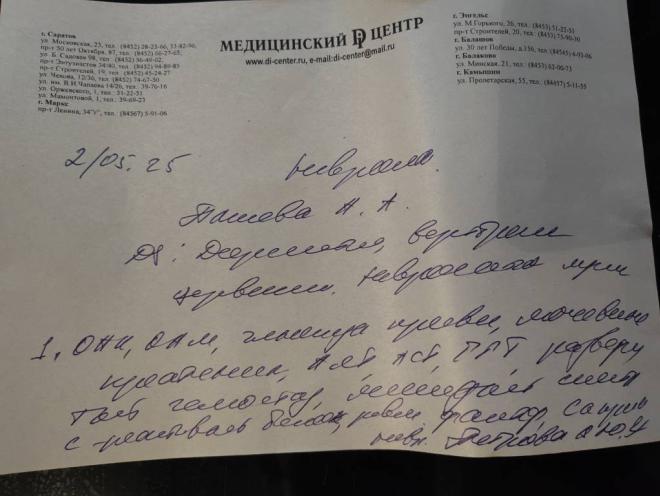 г. Саратов
ул. Московская, 23, тел. (8452) 28-23-66, 33-82-96,
пр-т 50 лет Октября, 87, тел. (8452) 66-27-65,
ул. Б. Садовая 98, тел. (8452) 56-49-02,
пр-т Энтузиастов 34/40, тел. (8452) 94-89-83
пр-т Строителей, 19, тел. (8452) 45-24-27
ул. Чехова, 12/36, тел. (8452) 74-67-50
ул. им. В.И.Чапаева 14/26, тел. 39-76-16
ул. Оржевского, 1, тел. 51-22-51
ул. Мамонтовой, 1, тел. 39-69-23
г. Маркс
пр-т Ленина, 34"у", тел. (84567) 5-91-06
МЕДИЦИНСКИЙ DI ЦЕНТР
www.di-center.ru, e-mail:di-center@mail.ru
г. Энгельс
ул. М.Горького, 26, тел. (8453) 51-22-51
пр-т Строителей, 20, тел. (8453) 75-90-30
г. Балашов
ул. 30 лет Победы, д.156, тел. (84545) 4-93-06
г. Балаково
ул. Минская, 21, тел. (8453) 62-00-73
г. Камышин
ул. Пролетарская, 55, тел.: (84457) 5-11-55
2/05.25
Невролог.
А. А.
DS:
1, ОАК, ОАМ, глюкоза крови, мочевина
креатинин, АЛТ АСТ, ГГТ разверну
тый гемостаз,
с-реактивный белок, ревм фактор,
невр. Петрова